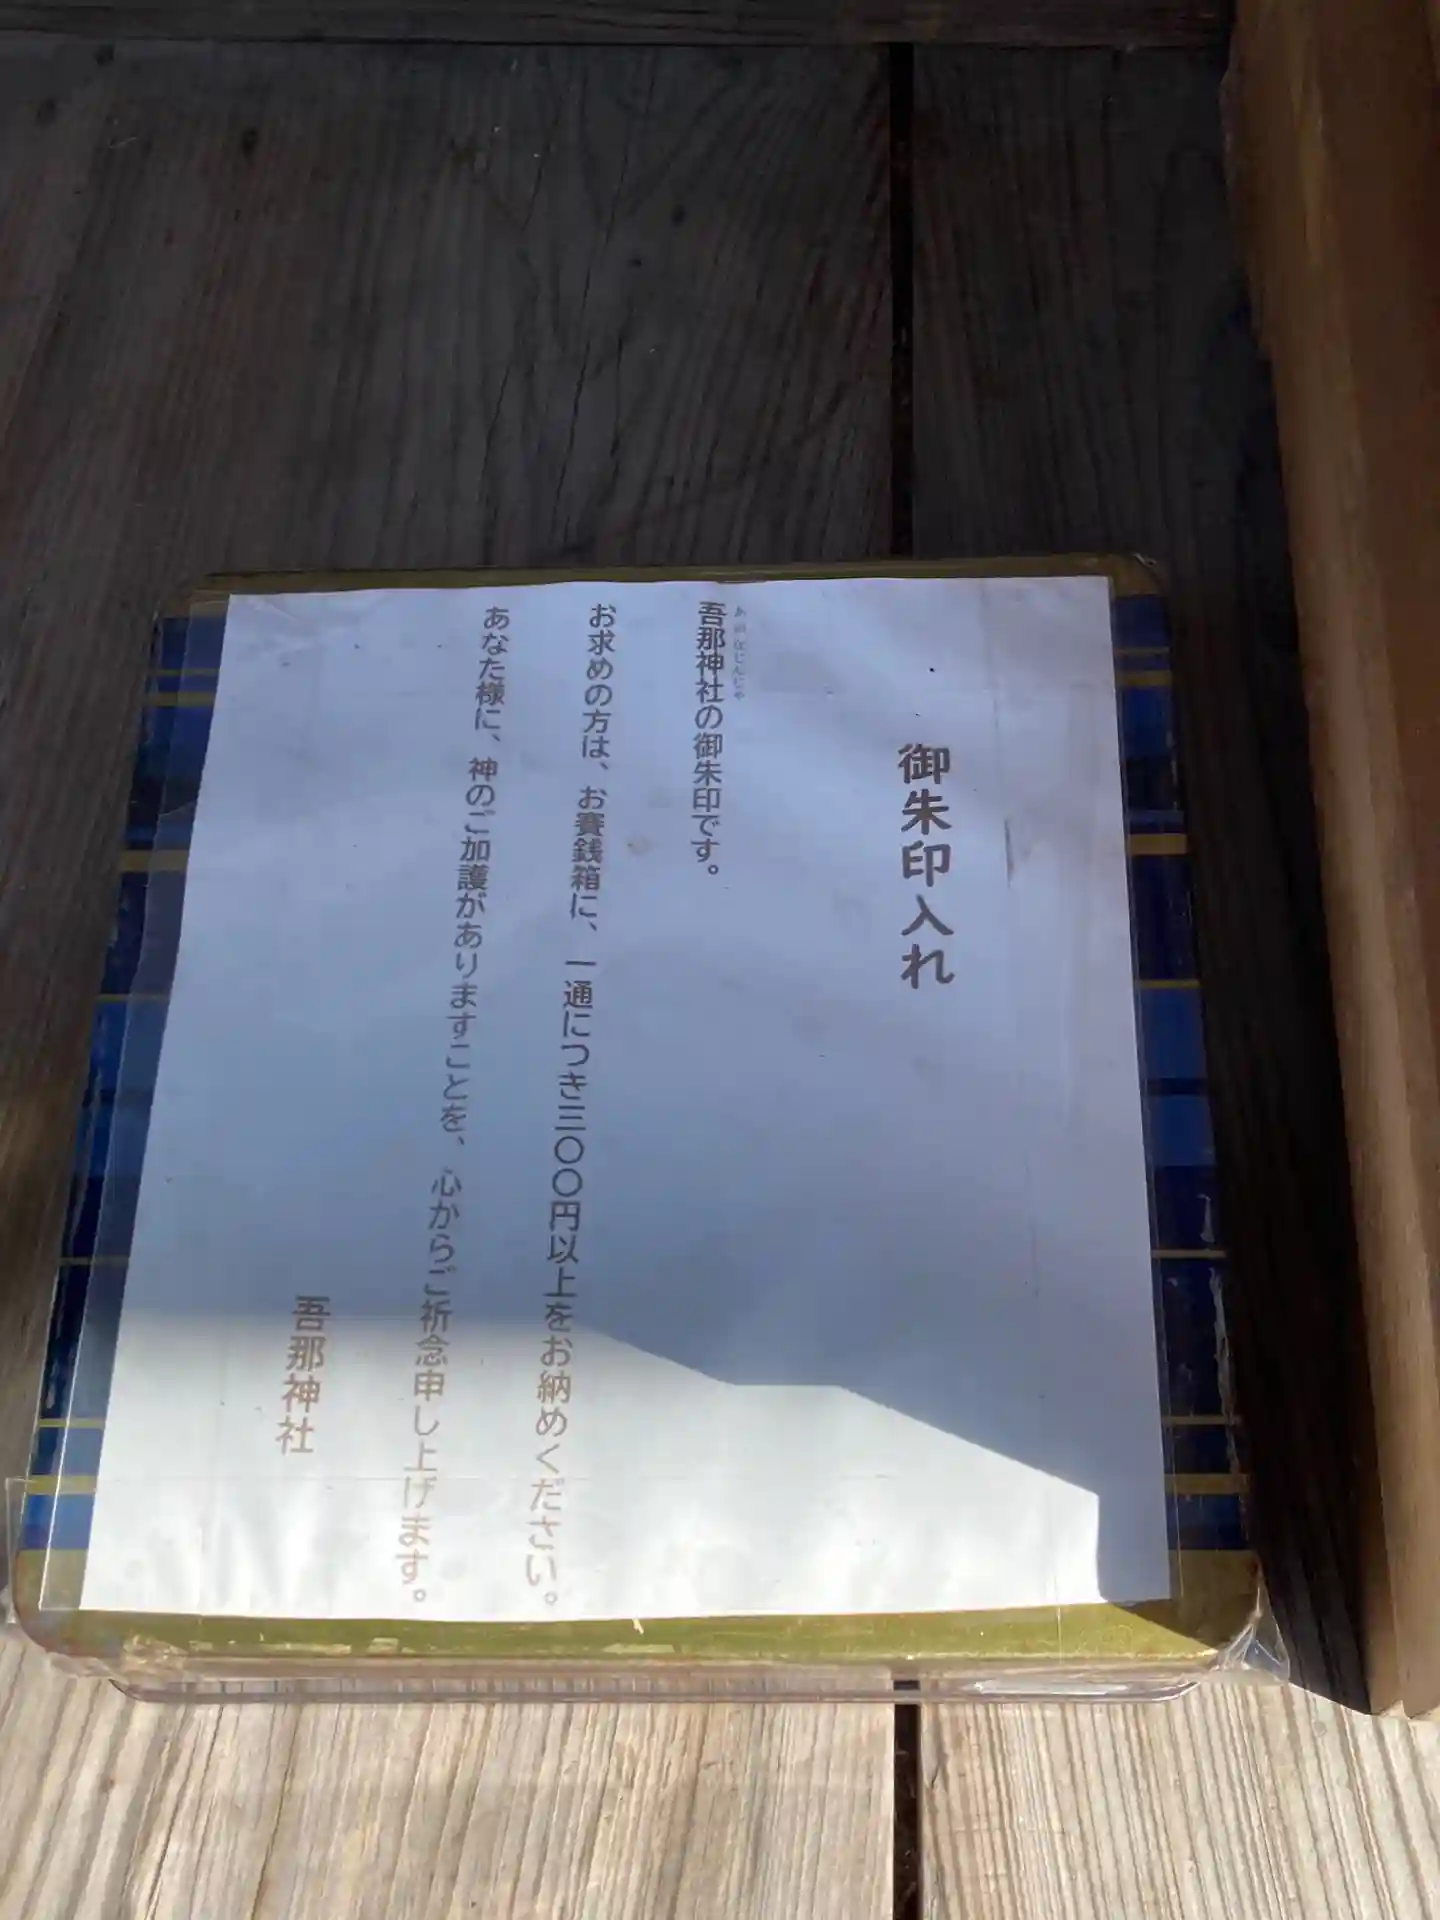 御朱印入れ
吾那神社の御朱印です。
お求めの方は、お賽銭箱に、一通につき三〇〇円以上をお納めください。
あなた様に、神のご加護がありますことを、心からご祈念申し上げます。
吾那神社